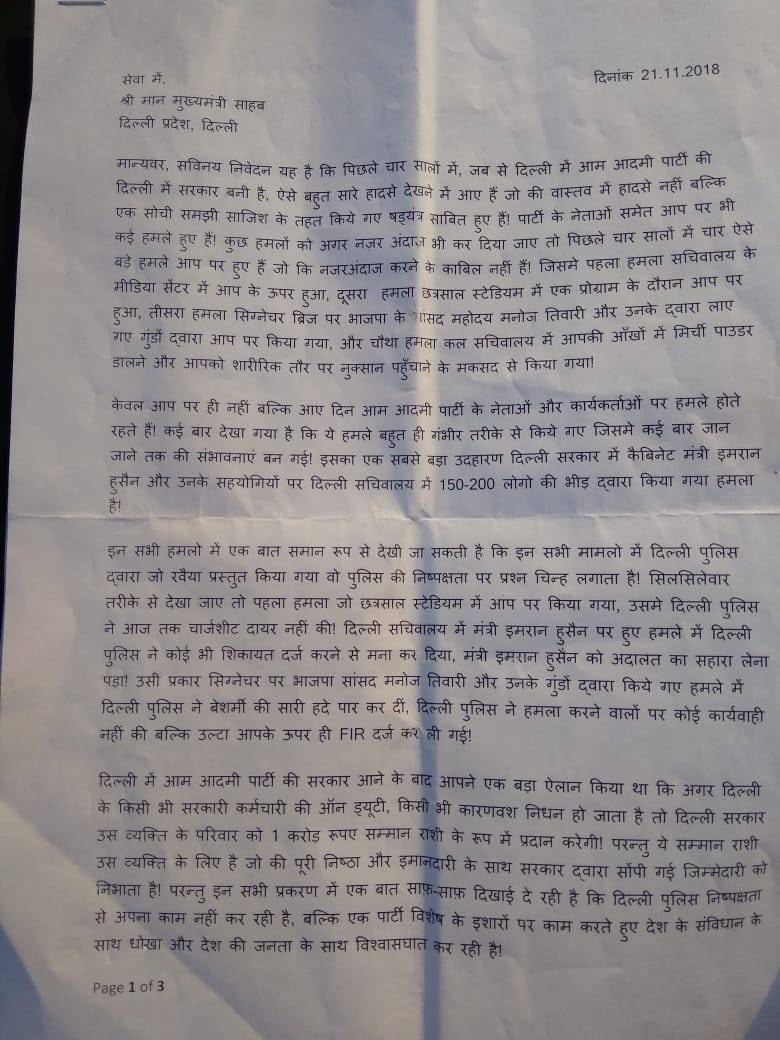 दिनांक 21.11.2018
सेवा में,
श्री मान मुख्यमंत्री साहब
दिल्ली प्रदेश, दिल्ली
मान्यवर, सविनय निवेदन यह है कि पिछले चार सालों में, जब से दिल्ली में आम आदमी पार्टी की
दिल्ली में सरकार बनी है, ऐसे बहुत सारे हादसे देखने में आए हैं जो की वास्तव में हादसे नहीं बल्कि
एक सोची समझी साजिश के तहत किये गए षड्यंत्र साबित हुए हैं! पार्टी के नेताओं समेत आप पर भी
कई हमले हुए हैं! कुछ हमलों को अगर नज़र अंदाज भी कर दिया जाए तो पिछले चार सालों में चार ऐसे
बड़े हमले आप पर हुए हैं जो कि नजरअंदाज करने के काबिल नहीं हैं! जिसमे पहला हमला सचिवालय के
मीडिया सेंटर में आप के ऊपर हुआ, दूसरा हमला छत्रसाल स्टेडियम में एक प्रोग्राम के दौरान आप पर
हुआ, तीसरा हमला सिग्नेचर ब्रिज पर भाजपा के सांसद महोदय मनोज तिवारी और उनके द्वारा लाए
गए गुंडों द्वारा आप पर किया गया, और चौथा हमला कल सचिवालय में आपकी आँखों में मिर्ची पाउडर
डालने और आपको शारीरिक तौर पर नुक्सान पहुँचाने के मकसद से किया गया!
केवल आप पर ही नहीं बल्कि आए दिन आम आदमी पार्टी के नेताओं और कार्यकर्ताओं पर हमले होते
रहते हैं! कई बार देखा गया है कि ये हमले बहुत ही गंभीर तरीके से किये गए जिसमे कई बार जान
जाने तक की संभावनाएं बन गई! इसका एक सबसे बड़ा उदहारण दिल्ली सरकार में कैबिनेट मंत्री इमरान
हुसैन और उनके सहयोगियों पर दिल्ली सचिवालय में 150-200 लोगो की भीड़ द्वारा किया गया हमला
है!
इन सभी हमलो में एक बात समान रूप से देखी जा सकती है कि इन सभी मामलो में दिल्ली पुलिस
द्वारा जो रवैया प्रस्तुत किया गया वो पुलिस की निष्पक्षता पर प्रश्न चिन्ह लगाता है! सिलसिलेवार
तरीके से देखा जाए तो पहला हमला जो छत्रसाल स्टेडियम में आप पर किया गया, उसमे दिल्ली पुलिस
ने आज तक चार्जशीट दायर नहीं की! दिल्ली सचिवालय में मंत्री इमरान हुसैन पर हुए हमले में दिल्ली
पुलिस ने कोई भी शिकायत दर्ज करने से मना कर दिया, मंत्री इमरान हुसैन को अदालत का सहारा लेना
पड़ा! उसी प्रकार सिग्नेचर पर भाजपा सांसद मनोज तिवारी और उनके गुंडों द्वारा किये गए हमले में
दिल्ली पुलिस ने बेशर्मी की सारी हदे पार कर दीं, दिल्ली पुलिस ने हमला करने वालों पर कोई कार्यवाही
नहीं की बल्कि उल्टा आपके ऊपर ही FIR दर्ज कर ली गई!
दिल्ली में आम आदमी पार्टी की सरकार आने के बाद आपने एक बड़ा ऐलान किया था कि अगर दिल्ली
के किसी भी सरकारी कर्मचारी की ऑन ड्यूटी, किसी भी कारणवश निधन हो जाता है तो दिल्ली सरकार
उस व्यक्ति के परिवार को 1 करोड़ रूपए सम्मान राशी के रूप में प्रदान करेगी! परन्तु ये सम्मान राशी
उस व्यक्ति के लिए है जो की पूरी निष्ठा और इमानदारी के साथ सरकार द्वारा सोंपी गई जिम्मेदारी को
निभाता है! परन्तु इन सभी प्रकरण में एक बात साफ़-साफ़ दिखाई दे रही है कि दिल्ली पुलिस निष्पक्षता
से अपना काम नहीं कर रही है, बल्कि एक पार्टी विशेष के इशारों पर काम करते हुए देश के संविधान के
साथ धोखा और देश की जनता के साथ विश्वासघात कर रही है!
Page 1 of 3